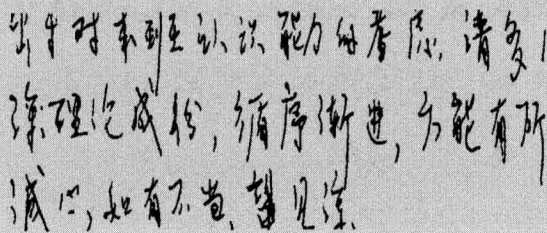 出于对本刊至认识能力的考虑,请多
深理论成份,循序渐进,方能有所
诚心,如有不当,望见谅